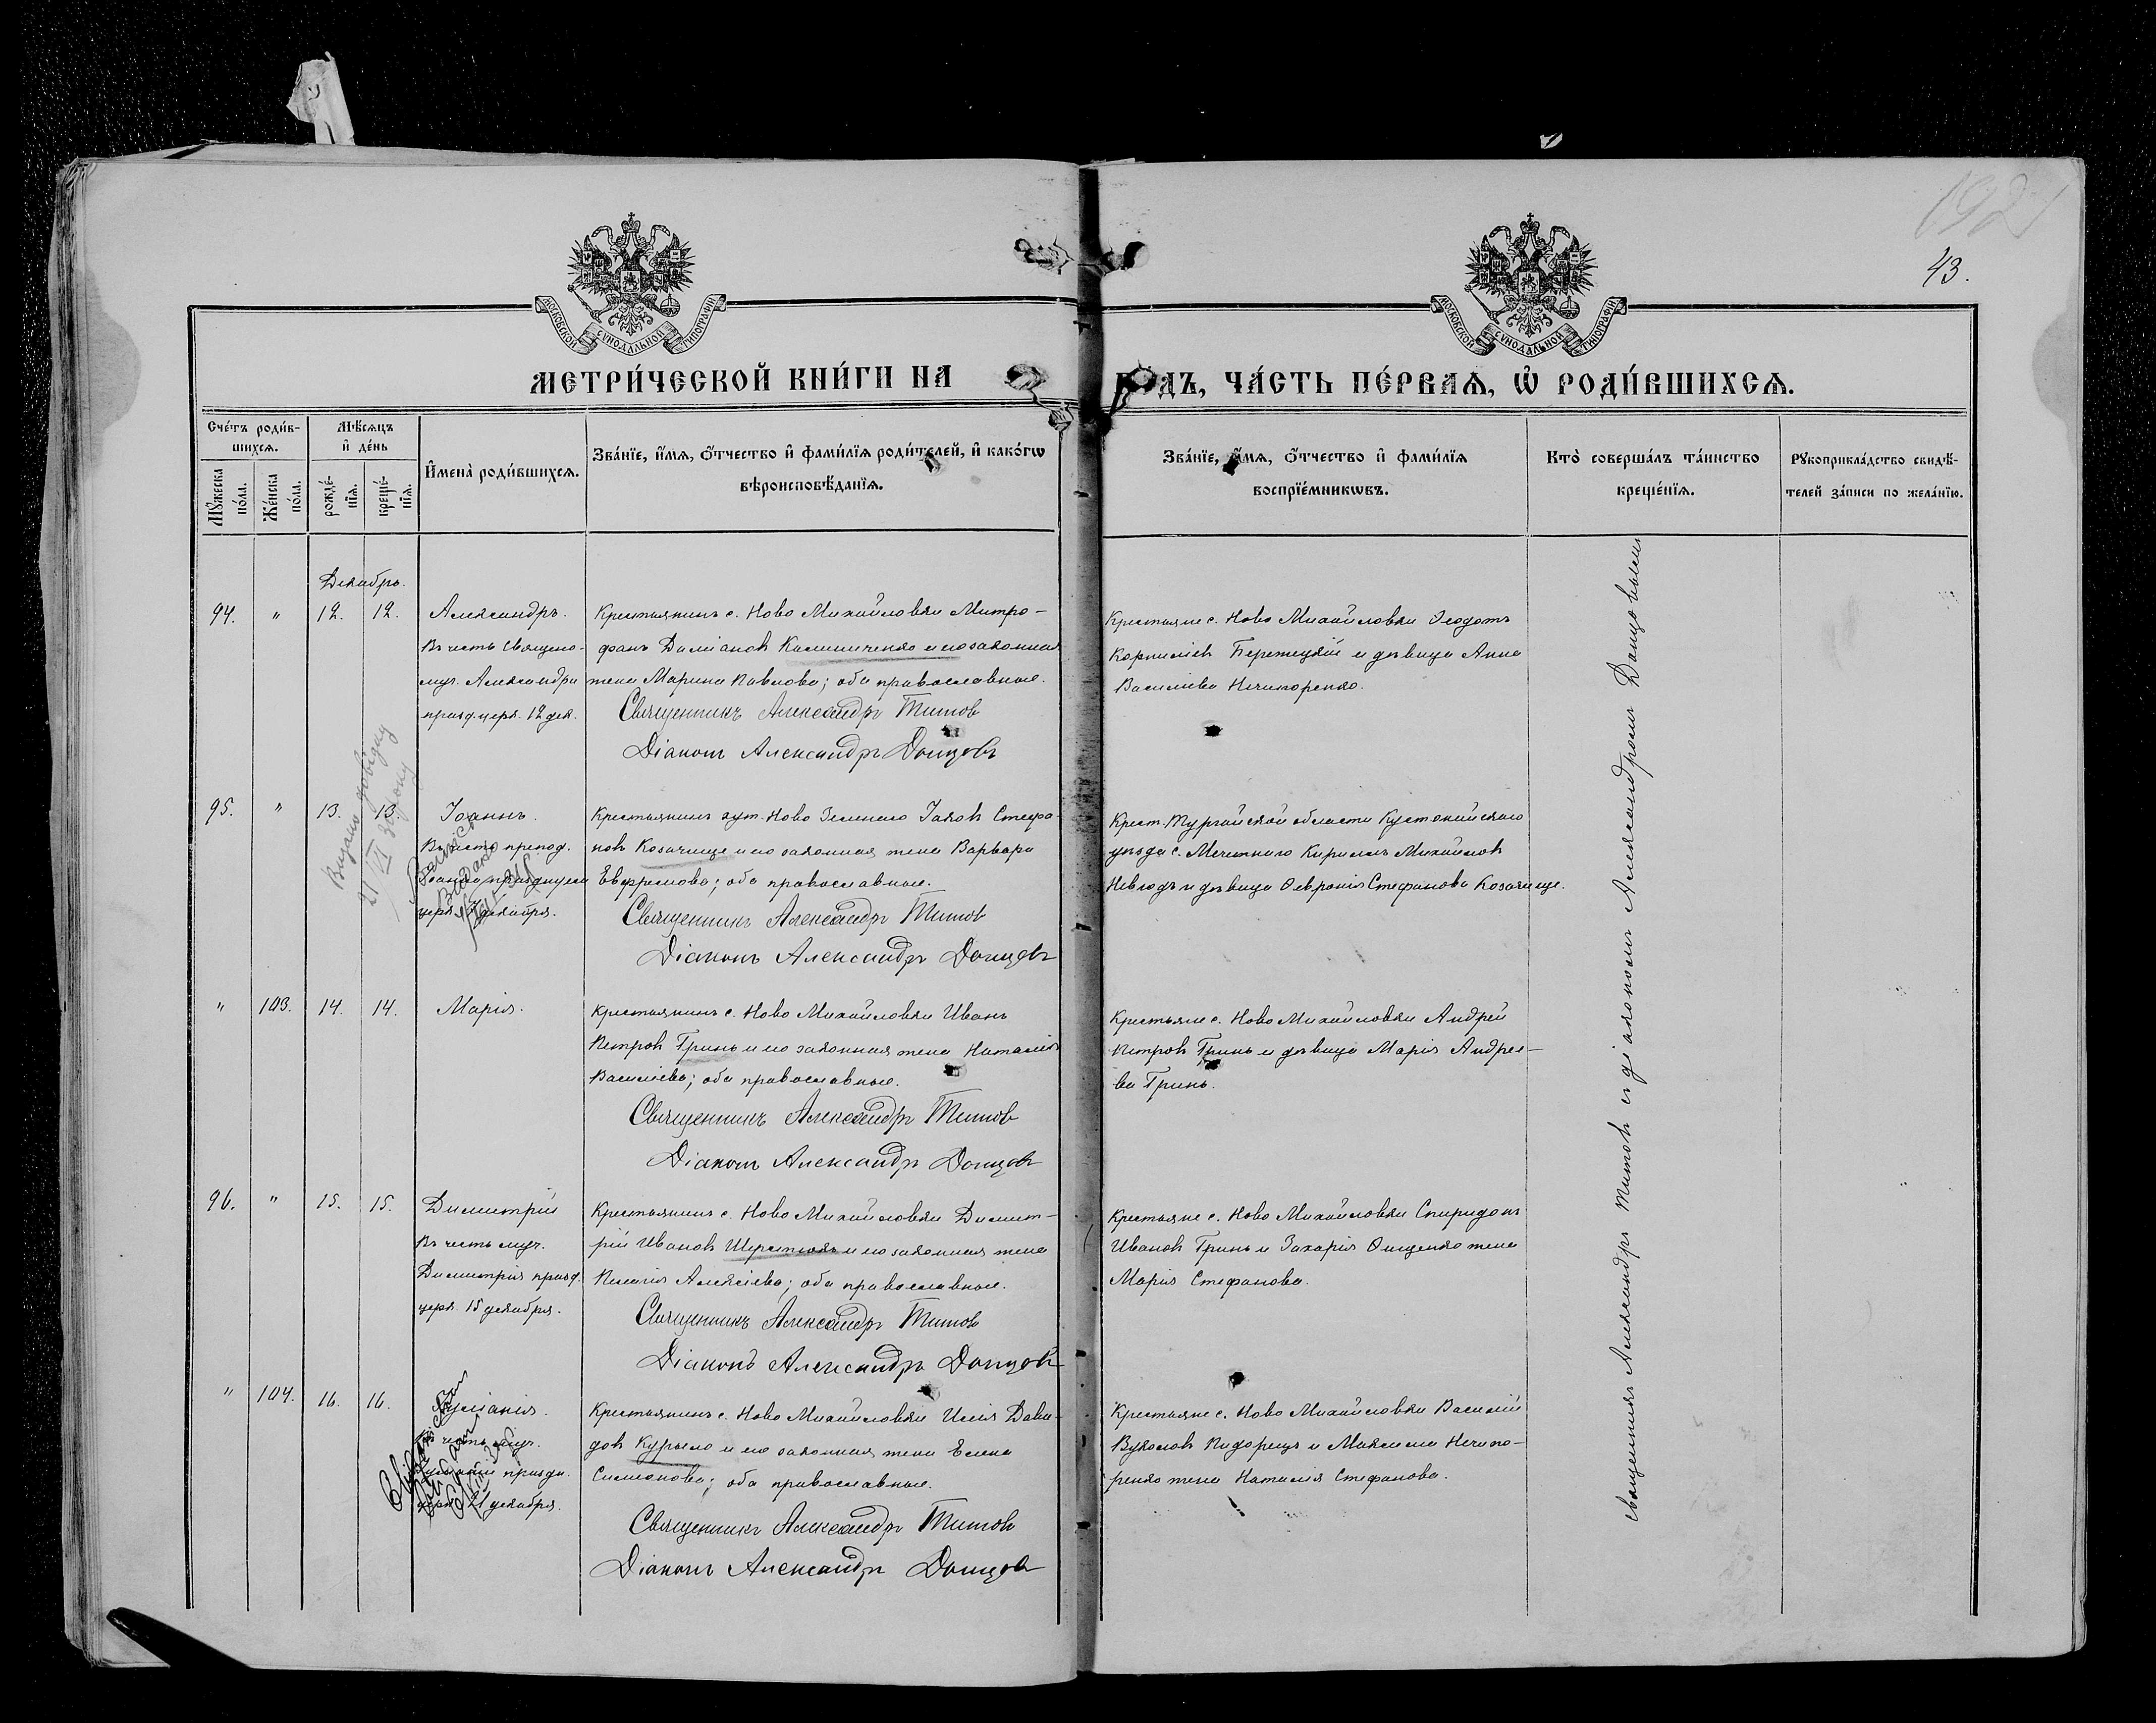 192
43.
МОСКОВСКОЙ СѴНОДАЛЬНОЙ ТИПОГРАФІИ
МОСКОВСКОЙ СѴНОДАЛЬНОЙ ТИПОГРАФІИ
МЕТРИ́ЧЕСКОЙ КНИ́ГИ НА ГОДЪ, ЧА́СТЬ ПЕ́РВАѦ, Ѡ҆ РОДИ́ВШИХСѦ.
Сче́тъ роди́в-
шихсѧ.
Мѣ́сѧцъ
и҆ де́нь
Мꙋ́жеска по́ла.
Же́нска по́ла.
рожде́-
нїѧ.
креще́-
нїѧ.
И҆мена̀ роди́вшихсѧ.
Зва́нїе, и҆́мѧ, ѻ҆́тчество и҆ фами́лїѧ роди́телей, и҆ како́гѡ
вѣроисповѣ́данїѧ.
Зва́нїе, и҆́мѧ, ѻ҆́тчество и҆ фами́лїѧ
воспрїе́мникѡвъ.
Кто̀ соверша́лъ та́инство
креще́нїѧ.
Рꙋкоприкла́дство свидѣ́-
телей за́писи по жела́нїю.
Декабрь.
94. " 12. 12. Александръ.
Въ честь священо-
муч. Александра
празд. церк. 12 дек.
Крестьянинъ с. Ново Михайловки Митро-
фанъ Даміановъ Калиниченко и его законная
жена Марина Павлова; оба православные.
Священникъ Александръ Титов
Діаконъ Александръ Донцовъ
Крестьяне с. Ново Михайловки Ѳеодотъ
Корниліевъ Бережецкій и дѣвица Анна
Василіева Нечипоренко.
Видано довідку
21 VII 36 року
95. " 13. 13. Іоаннъ.
Въ честь препод.
Іоанна празднуем.
церк. 7 декабря.
Крестьянинъ хут. Ново Зеленаго Іаковъ Стефа-
новъ Козачище и его законная жена Варвара
Евфремова; оба православные.
Священникъ Александръ Титов
Діаконъ Александръ Донцовъ
Крест. Тургайской области Кустанайскаго
уѣзда с. Мечетнаго Кириллъ Михайловъ
Невгодъ и дѣвица Ѳевронія Стефанова Козачище.
" 103. 14. 14. Марія.
Крестьянинъ с. Ново Михайловки Иванъ
Петровъ Гринь и его законная жена Наталія
Василіева; оба православные.
Священникъ Александръ Титов
Діаконъ Александръ Донцовъ
Крестьяне с. Ново Михайловки Андрей
Петровъ Гринь и дѣвица Марія Андрее-
ва Гринь.
96. " 15. 15. Димитрій
Въ честь муч.
Димитрія празд.
церк. 15 декабря.
Крестьянинъ с. Ново Михайловки Димит-
рій Ивановъ Шерстюкъ и его законная жена
Пелагія Алексіева; оба православные.
Священникъ Александръ Титов
Діаконъ Александръ Донцовъ
Крестьяне с. Ново Михайловки Спиридонъ
Ивановъ Гринь и Захарія Онищенко жена
Марія Стефанова.
" 104. 16. 16. Іуліанія.
Въ честь муч.
Іуліаніи праздн.
церк. 21 декабря.
Крестьянинъ с. Ново Михайловки Илія Дави-
довъ Курыло и его законная жена Елена
Симеонова; оба православные.
Священникъ Александръ Титовъ
Діаконъ Александръ Донцов
Крестьяне с. Ново Михайловки Василій
Вуколовъ Пидорецъ и Максима Нечипо-
ренко жена Наталія Стефанова.
Священникъ Александръ Титовъ и діакономъ Александромъ Донцовымъ